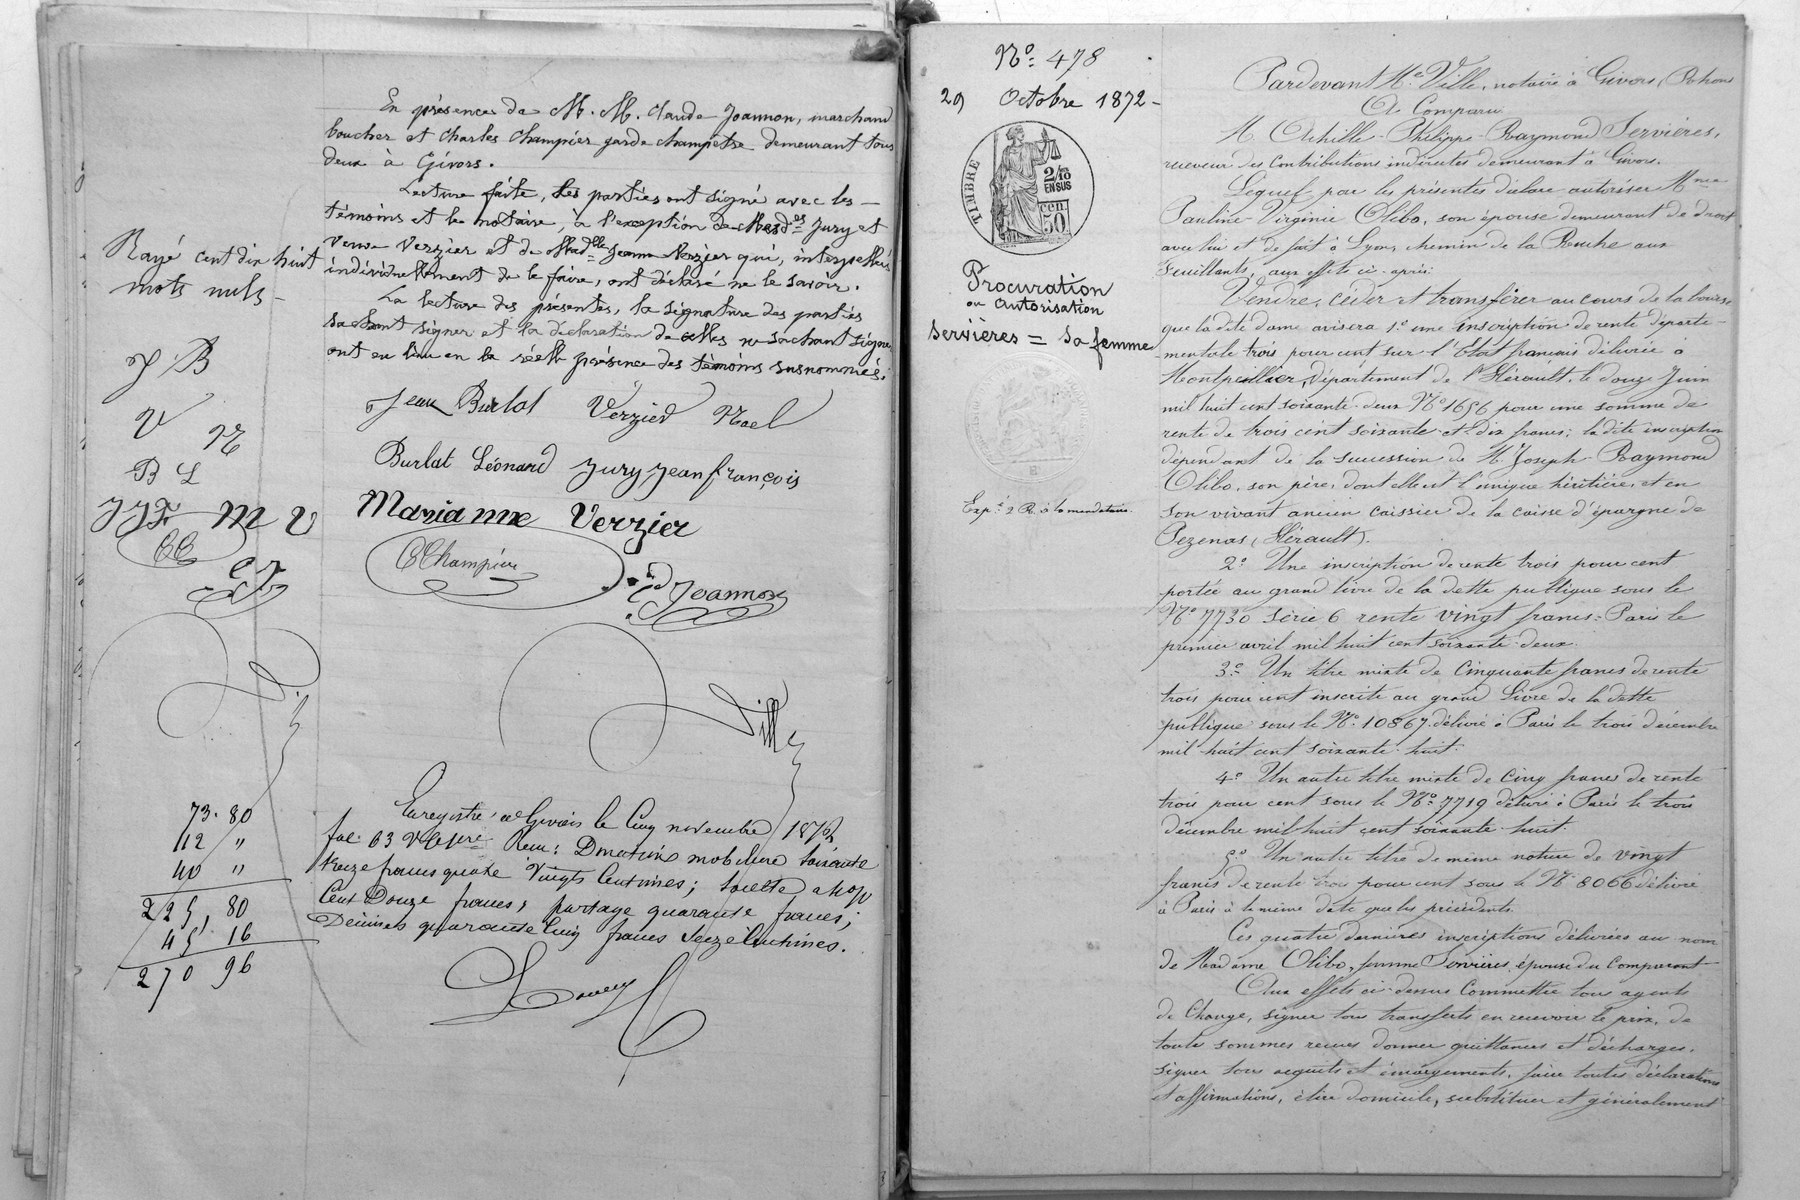 En présence de M. M. Claude Joannon, marchand
boucher et Charles Champier garde champêtre demeurant tous
deux à Givors.
Lecture faite, les parties ont signé avec les
témoins et le notaire, à l'exception de Mesdes Jury et
veuve Verzier et de Madlle Jeanne Verzier qui, interpellées
individuellement de le faire, ont déclaré ne le savoir.
La lecture des présentes, la signature des parties
sachant signer et la déclaration de celles ne sachant signer
ont eu lieu en la réelle présence des témoins susnommés.
Rayé cent dix huit
mots nuls
J. B
V N
B L
J J F M V
CC
C J
Jean Burlat Verzier Noel
Burlat Léonard Jury jean françois
Marianne Verzier
C Champier
Cde Joannon
Ville
Enregistré à Givors le Cinq novembre 1872
fol. 63 Reçu: Donation mobilière soixante
treize francs quatre vingts centimes; soulte
Cent Douze francs; partage quarante francs;
Décimes quarante Cinq francs Seize Centimes.
73. 80
112 "
40 "
225, 80
45 16
270 96
No. 478
29 Octobre 1872
TIMBRE
2/10
EN SUS
50 CEN.
Procuration
ou autorisation
Servières = Sa femme
Expé 2 R. à la mandataire
Pardevant Me Ville, notaire à Givors, Rhône
A Comparu
M. Achille-Philippe-Raymond Servières,
receveur des Contributions indirectes demeurant à Givors.
Lequel par les présentes déclare autoriser Mme
Pauline-Virginie Olibo, son épouse demeurant de droit
avec lui et de fait à Lyon, chemin de la aux
feuillants, aux effets ci-après:
Vendre, céder et transférer au cours de la bourse
que la dite dame avisera 1o une inscription de rente départe-
mentale trois pour cent sur l'Etat français délivrée à
Montpellier, département de l'Hérault, le douze Juin
mil huit cent soixante-deux No 1656 pour une somme de
rente de trois cent soixante-et-dix francs; la dite inscription
dépendant de la succession de M. Joseph-Raymond
Olibo, son père, dont elle est l'unique héritière, et en
son vivant ancien caissier de la caisse d'épargne de
Pezenas (Hérault).
2o Une inscription de rente trois pour cent
portée au grand livre de la dette publique sous le
No 7730 série 6 rente vingt francs = Paris le
premier avril mil huit cent soixante-deux.
3o Un titre mixte de Cinquante francs de rente
trois pour cent inscrite au grand Livre de la dette
publique sous le No 10867 délivré à Paris le trois décembre
mil huit cent soixante-huit.
4o Un autre titre mixte de Cinq francs de rente
trois pour cent sous le No 7719 délivré à Paris le trois
décembre mil huit cent soixante-huit.
5o Un autre titre de même nature de vingt
francs de rente trois pour cent sous le No 8066 délivré
à Paris à la même date que les précédents.
Ces quatre dernières inscriptions délivrées au nom
de Madame Olibo, femme Servières, épouse du Comparant
Aux effets ci-dessus Commettre tous agents
de Change, signer tous transferts en recevoir le prix, de
toute sommes reçues donner quittances et décharges,
signer tous acquits et émargements, faire toutes déclarations
et affirmations, élire domicile, substituer et généralement